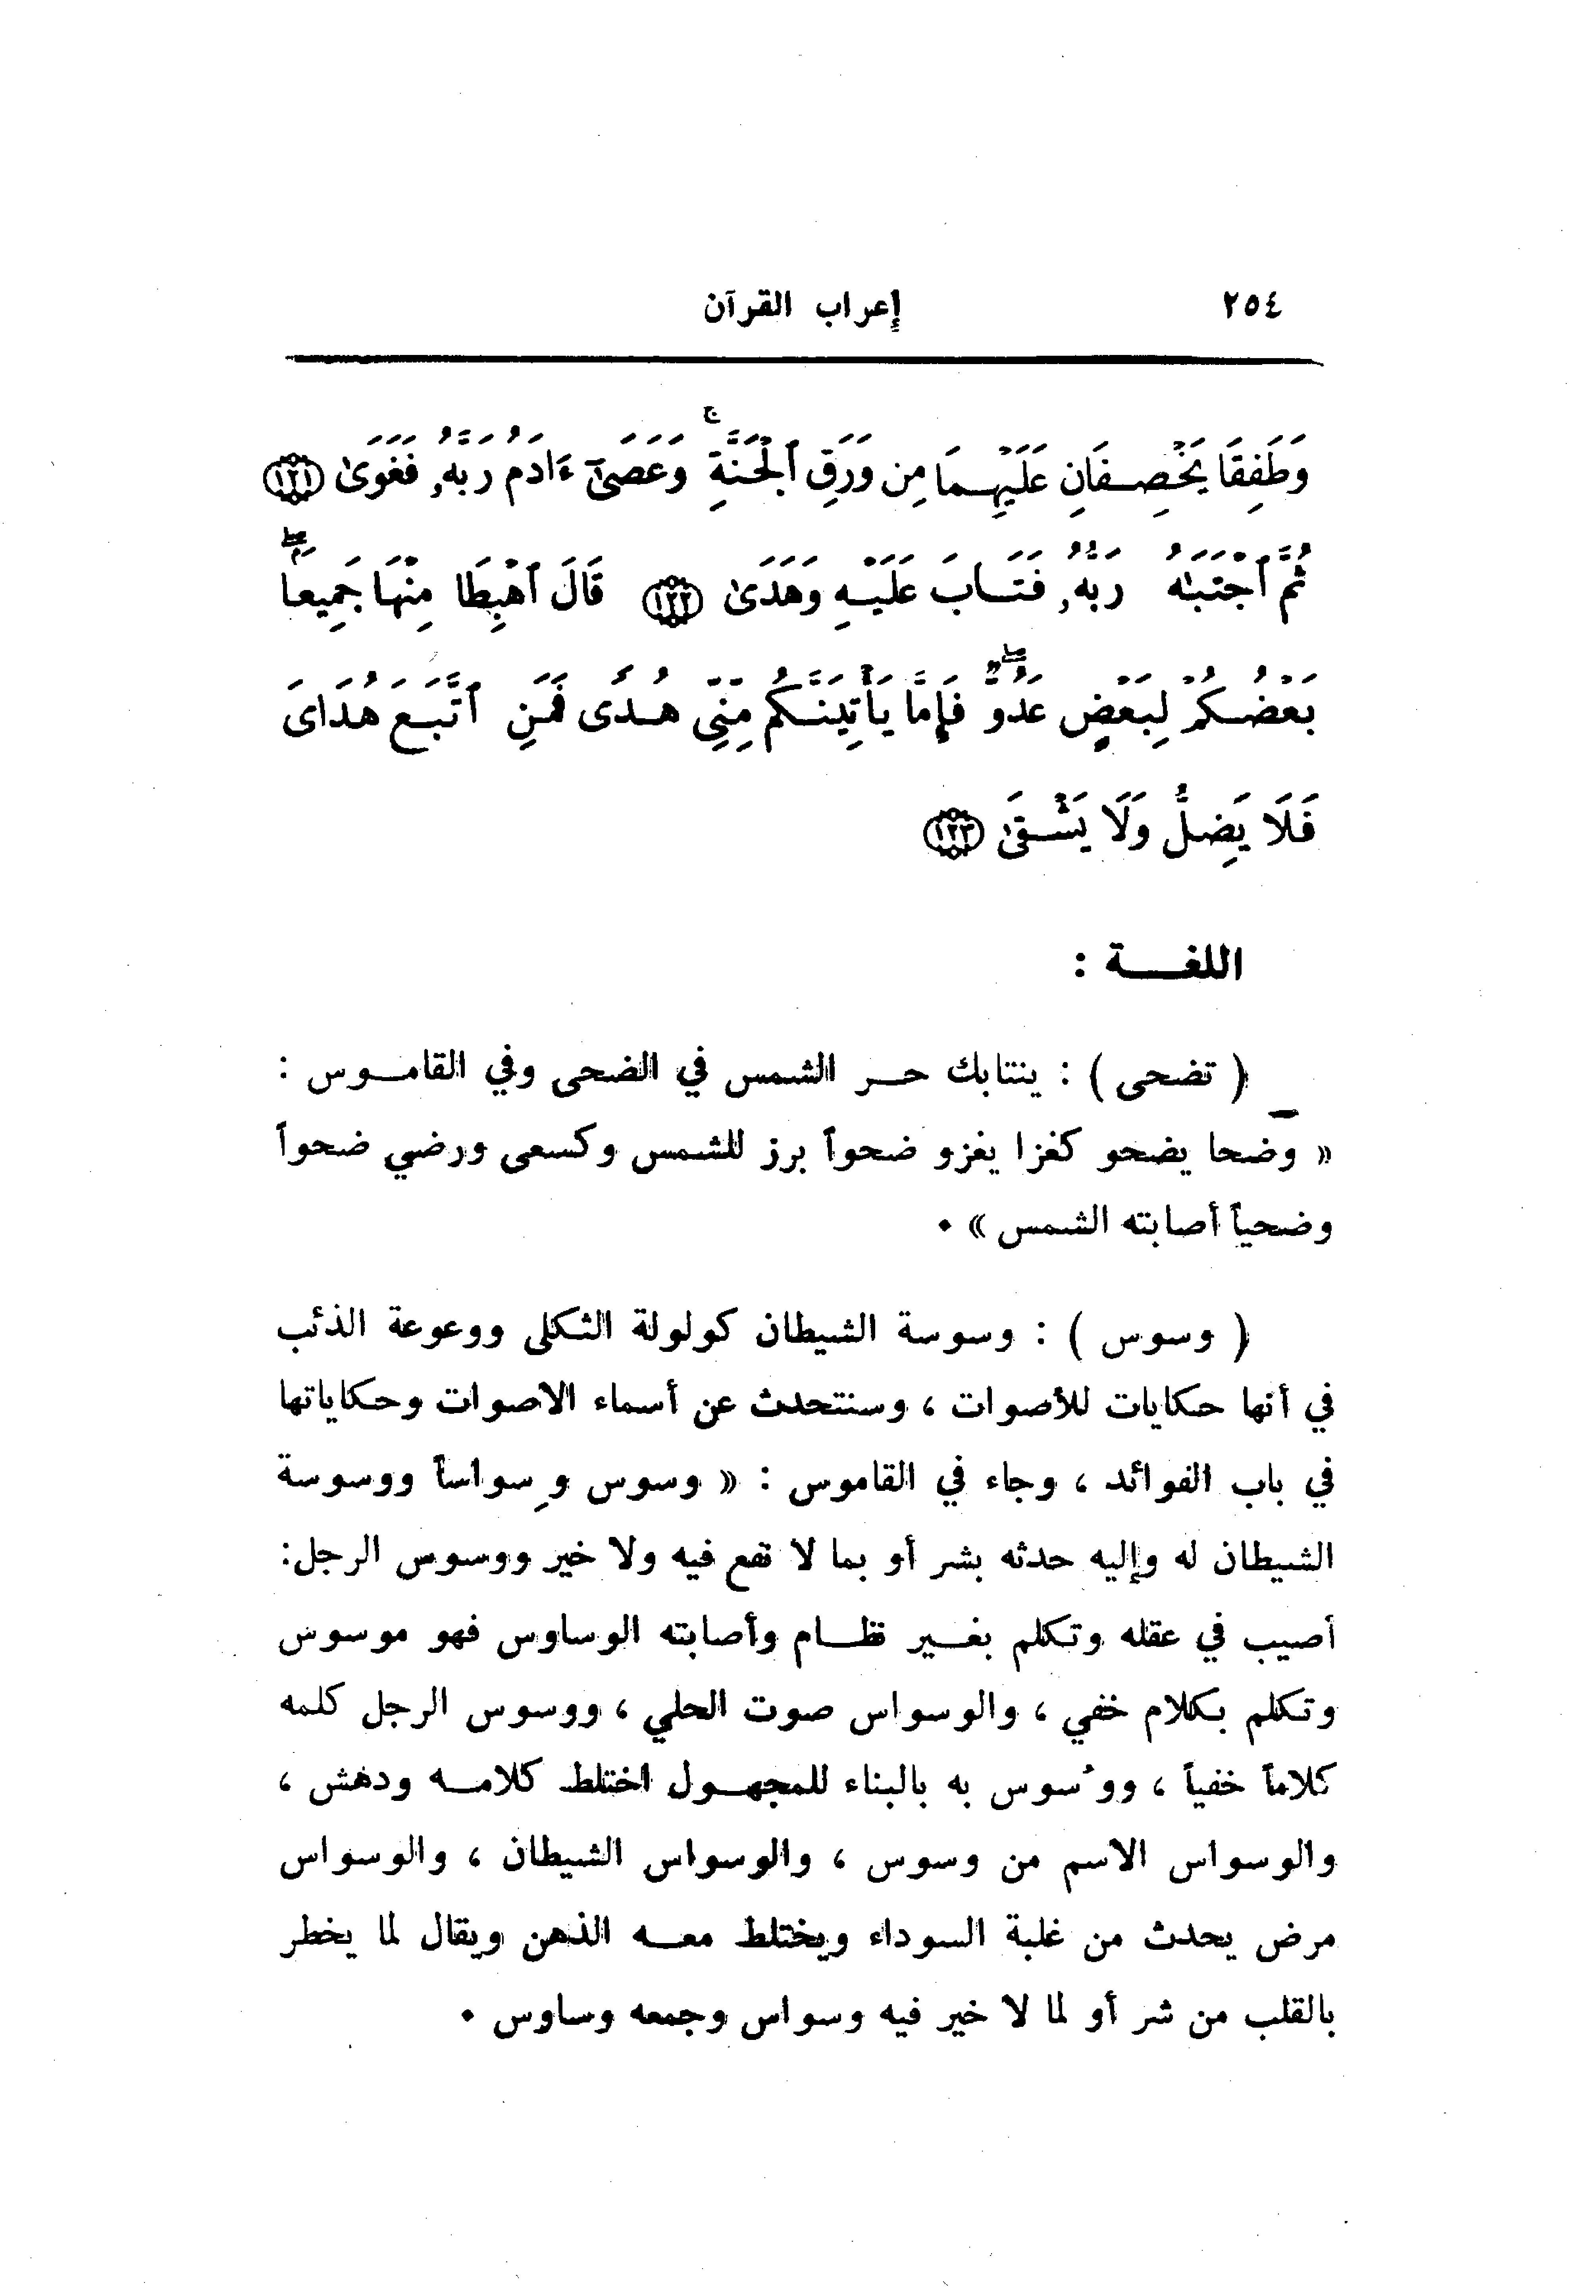 ٢٥٤ إعراب القرآن
وَطَفِقَا يَخْصِفَانِ عَلَيْهِمَا مِن وَرَقِ ٱلْجَنَّةِ ۚ وَعَصَىٰٓ ءَادَمُ رَبَّهُۥ فَغَوَىٰ ﴿١٢١﴾
ثُمَّ ٱجْتَبَٰهُ رَبُّهُۥ فَتَابَ عَلَيْهِ وَهَدَىٰ ﴿١٢٢﴾ قَالَ ٱهْبِطَا مِنْهَا جَمِيعًۢا ۖ
بَعْضُكُمْ لِبَعْضٍ عَدُوٌّ ۖ فَإِمَّا يَأْتِيَنَّكُم مِّنِّى هُدًى فَمَنِ ٱتَّبَعَ هُدَاىَ
فَلَا يَضِلُّ وَلَا يَشْقَىٰ ﴿١٢٣﴾
اللغـــة :
( تضحى ) : ينتابك حـــر الشمس في الضحى وفي القامــوس :
« وضحا يضحو كغزا يغزو ضحواً برز للشمس وكسعى ورضي ضحواً
وضحياً أصابته الشمس » ٠
( وسوس ) : وسوسة الشيطان كولولة الثكلى ووعوعة الذئب
في أنها حكايات للأصوات ، وسنتحدث عن أسماء الاصوات وحكاياتها
في باب الفوائد ، وجاء في القاموس : « وسوس وِسواساً ووسوسة
الشيطان له وإليه حدثه بشر أو بما لا نفع فيه ولا خير ووسوس الرجل:
أصيب في عقله وتكلم بغـــير نظـــام وأصابته الوساوس فهو موسوس
وتكلم بكلام خفي ، والوسواس صوت الحلي ، ووسوس الرجل كلمه
كلاماً خفياً ، ووُسوس به بالبناء للمجهــول اختلط كلامــه ودهش ،
والوسواس الاسم من وسوس ، والوسواس الشيطان ، والوسواس
مرض يحدث من غلبة السوداء ويختلط معــه الذهن ويقال لما يخطر
بالقلب من شر أو لما لا خير فيه وسواس وجمعه وساوس ٠